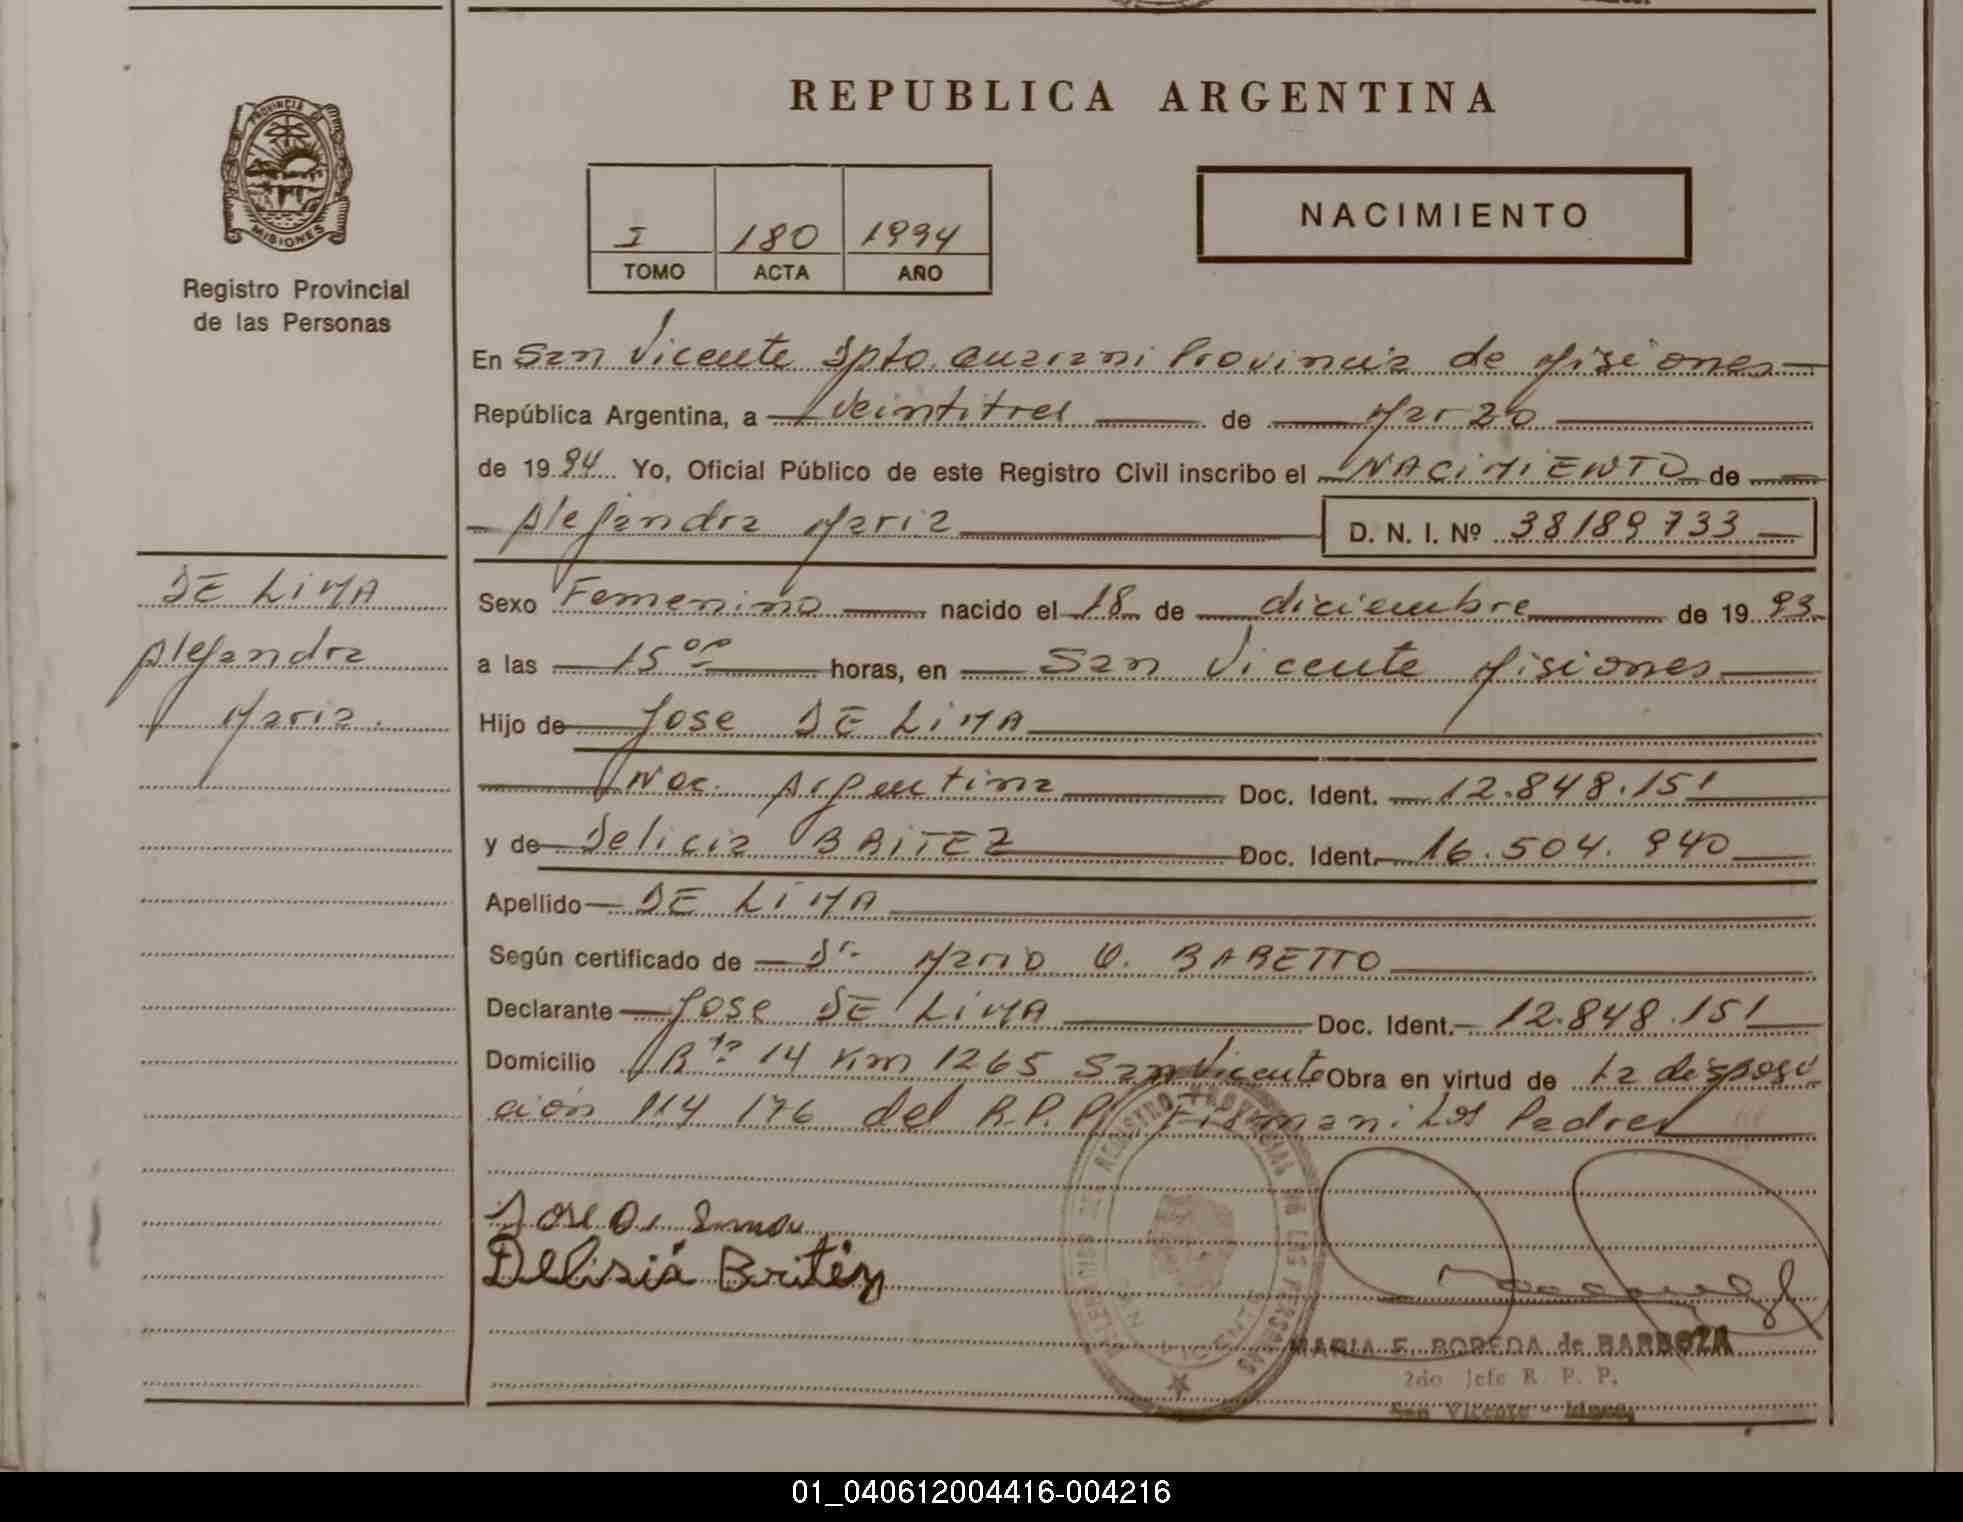 REPUBLICA ARGENTINA
PROVINCIA
MISIONES
Registro Provincial
de las Personas
I 180 1994
TOMO ACTA AÑO
NACIMIENTO
En San Vicente Dpto. Guarani Provincia de Misiones
República Argentina, a veintitres de Marzo
de 1994 Yo, Oficial Público de este Registro Civil inscribo el NACIMIENTO de
Alejandra Maria D. N. I. Nº 38189733
DE LIMA
Alejandra
Maria.
Sexo Femenino nacido el 18 de diciembre de 1993
a las 15 00 horas, en San Vicente Misiones
Hijo de Jose DE LIMA
Nac. Argentina Doc. Ident. 12.848.151
y de Delicia BRITEZ Doc. Ident. 16.504.940
Apellido DE LIMA
Según certificado de Dr. Mario O. BARETTO
Declarante Jose DE LIMA Doc. Ident. 12.848.151
Domicilio Rta 14 Km 1265 San Vicente Obra en virtud de la disposi
ción 114 176 del R.P.P. Firman: Los Padres
Jose
Delisia Britez
REGISTRO PROVINCIAL DE LAS PERSONAS
MARIA E. POREDA de BARBOZA
2do Jefe R. P. P.
San Vicente - Mnes.
01_040612004416-004216